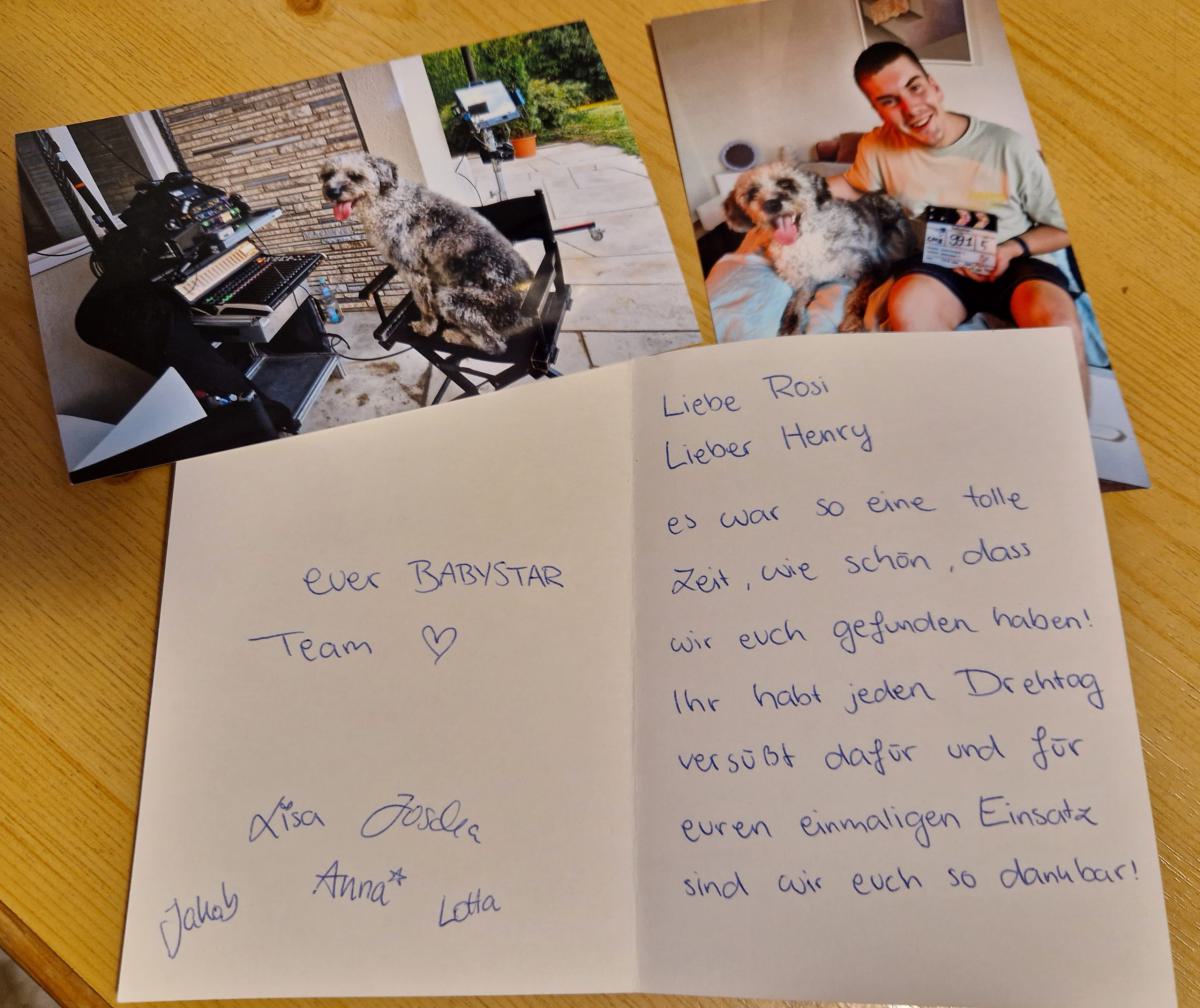 991 5
Liebe Rosi
Lieber Henry
es war so eine tolle
Zeit, wie schön, dass
wir euch gefunden haben!
Ihr habt jeden Drehtag
versüßt dafür und für
euren einmaligen Einsatz
sind wir euch so dankbar!
euer BABYSTAR
Team ♡
Lisa Joscha
Anna*
Jakob Lotta